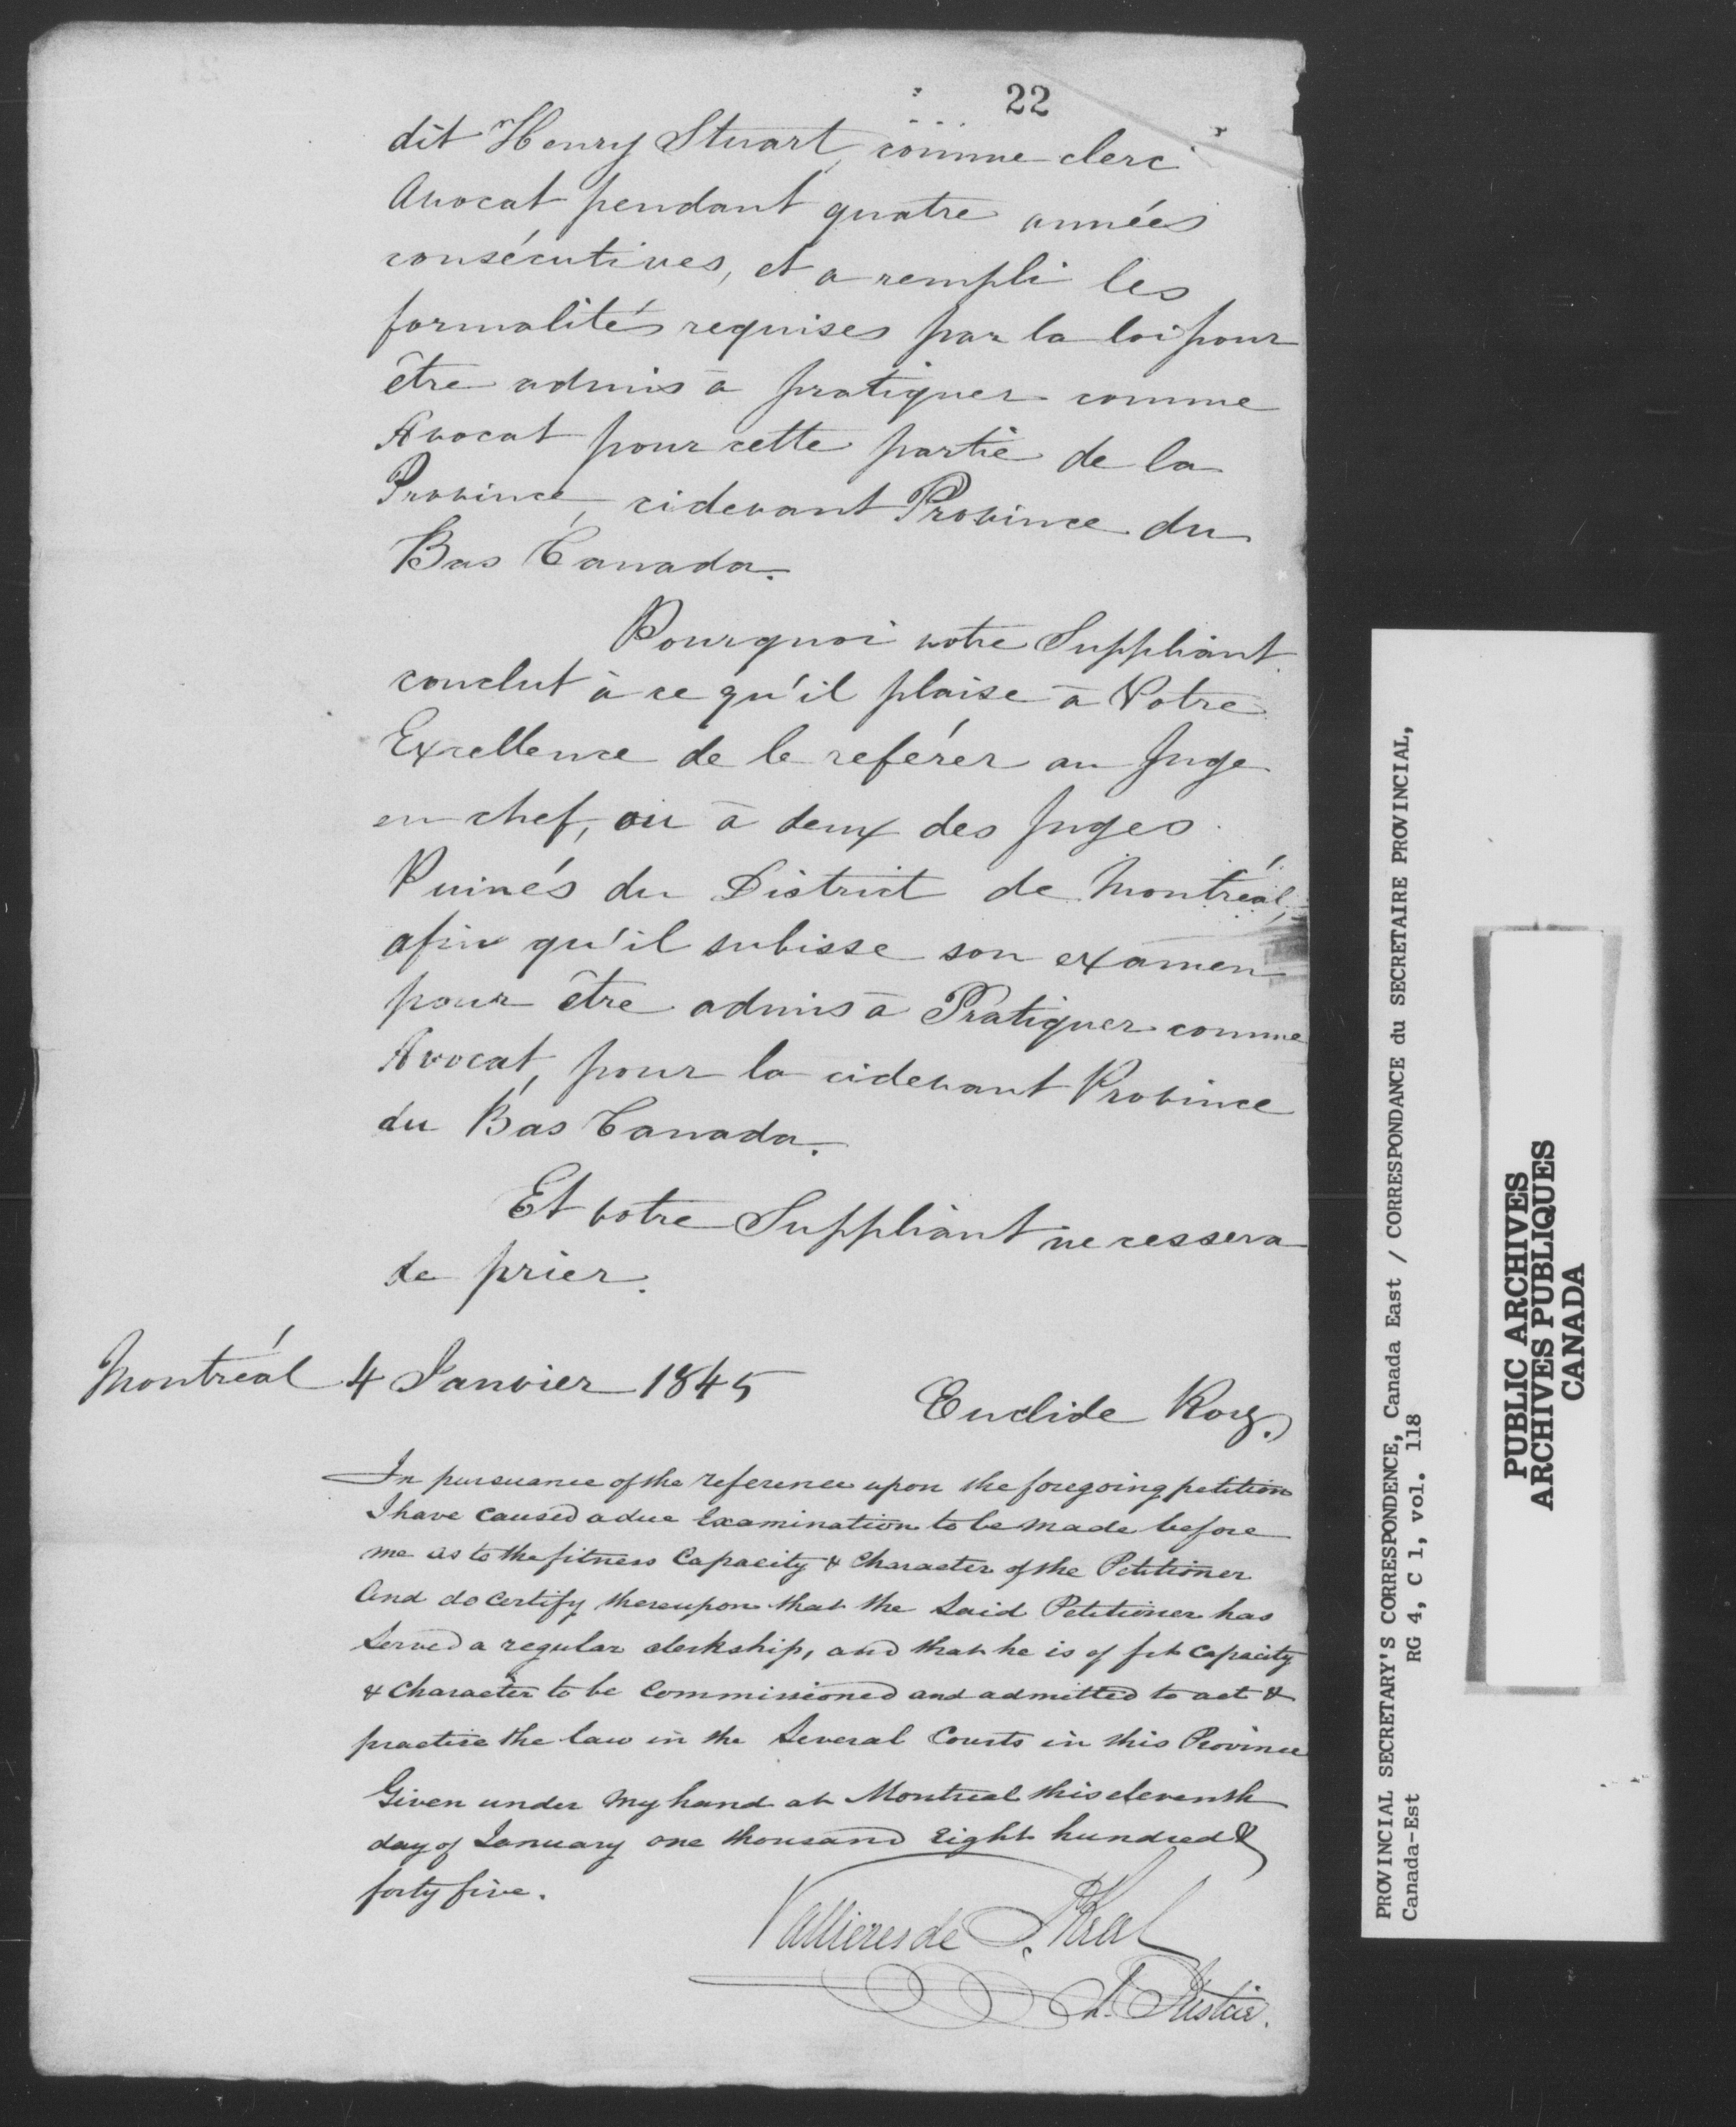 22
dit Henry Stuart, comme clerc
Avocat pendant quatre années
consécutives, et a rempli les
formalités requises par la loi pour
être admis à pratiquer comme
Avocat pour cette partie de la
Province, cidevant Province du
Bas Canada.
Pourquoi votre Suppliant
conclut à ce qu'il plaise à Votre
Excellence de le reférer au Juge
en chef, ou à deux des Juges
Puinés du District de Montréal,
afin qu'il subisse son examen
pour être admis à Pratiquer comme
Avocat, pour la cidevant Province
du Bas Canada.
Et votre Suppliant ne cessera
de prier.
Montréal 4 Janvier 1845
Euclide Roy.
In pursuance of the reference upon the foregoing petition
I have caused a due Examination to be made before
me as to the fitness Capacity & Character of the Petitioner
And do certify thereupon that the Said Petitioner has
Served a regular clerkship, and that he is of fit Capacity
& Character to be Commissioned and admitted to act &
practice the law in the Several Courts in this Province
Given under my hand at Montreal this eleventh
day of January one thousand Eight hundred &
forty five.
Vallieres de St. Real
Ch. Justice.
PROVINCIAL SECRETARY'S CORRESPONDENCE, Canada East / CORRESPONDANCE du SECRETAIRE PROVINCIAL,
Canada-Est RG 4, C 1, vol. 118
PUBLIC ARCHIVES
ARCHIVES PUBLIQUES
CANADA